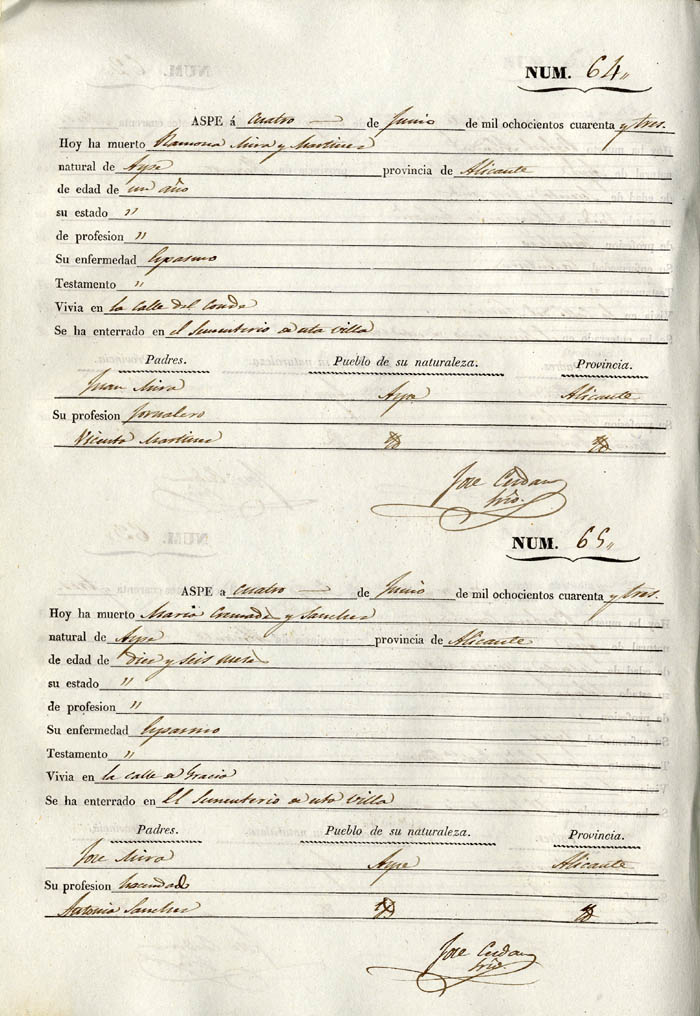 NUM. 64„
ASPE á cuatro — de Junio de mil ochocientos cuarenta y tres.
Hoy ha muerto Ramona Mira y Martinez
natural de Aspe provincia de Alicante
de edad de un año
su estado „
de profesion „
Su enfermedad Espasmo
Testamento „
Vivia en la calle del Conde
Se ha enterrado en el Sementerio de esta villa
Padres. Pueblo de su naturaleza. Provincia.
Juan Mira Aspe Alicante
Su profesion Jornalero
Vicenta Martinez
Jose Cerdan
Srio.
NUM. 65„
ASPE a cuatro — de Junio de mil ochocientos cuarenta y tres.
Hoy ha muerto Maria y Sanchez
natural de Aspe provincia de Alicante
de edad de diez y seis meses
su estado „
de profesion „
Su enfermedad Espasmo
Testamento „
Vivia en la calle de Gracia
Se ha enterrado en El Sementerio de esta villa
Padres. Pueblo de su naturaleza. Provincia.
Jose Mira Aspe Alicante
Su profesion hacendado
Antonia Sanchez
Jose Cerdan
Srio.